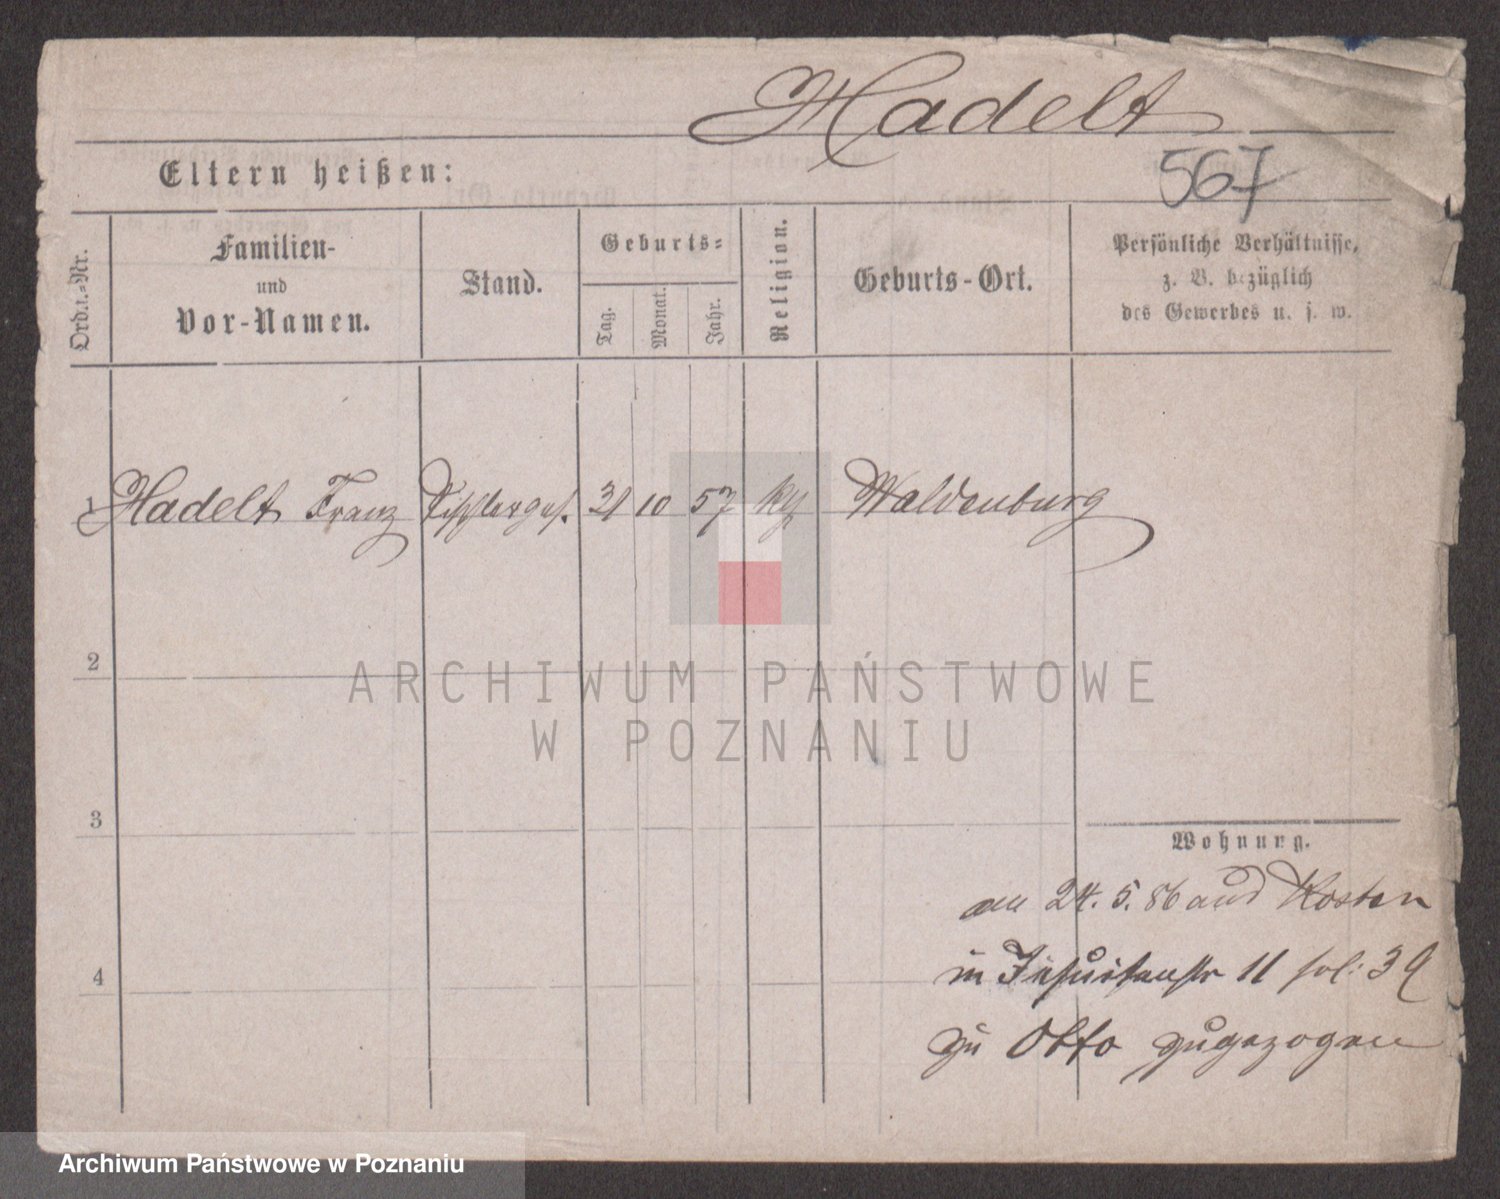 Hadelt
567
Eltern heißen:
Ord.t.-Nr.
Familien-
und
Vor-Namen.
Stand.
Geburts-
Tag.
Monat.
Jahr.
Religion.
Geburts-Ort.
Persönliche Verhältnisse,
z. B. bezüglich
des Gewerbes u. s. w.
1 Hadelt Franz Tischlerges. 31 10 57 Waldenburg
2
ARCHIWUM PAŃSTWOWE
W POZNANIU
3
Wohnung.
am 24. 5. 86 aus Kosten
4
in Jesuitenstr 11 fol: 39
zu Otto zugezogen
Archiwum Państwowe w Poznaniu